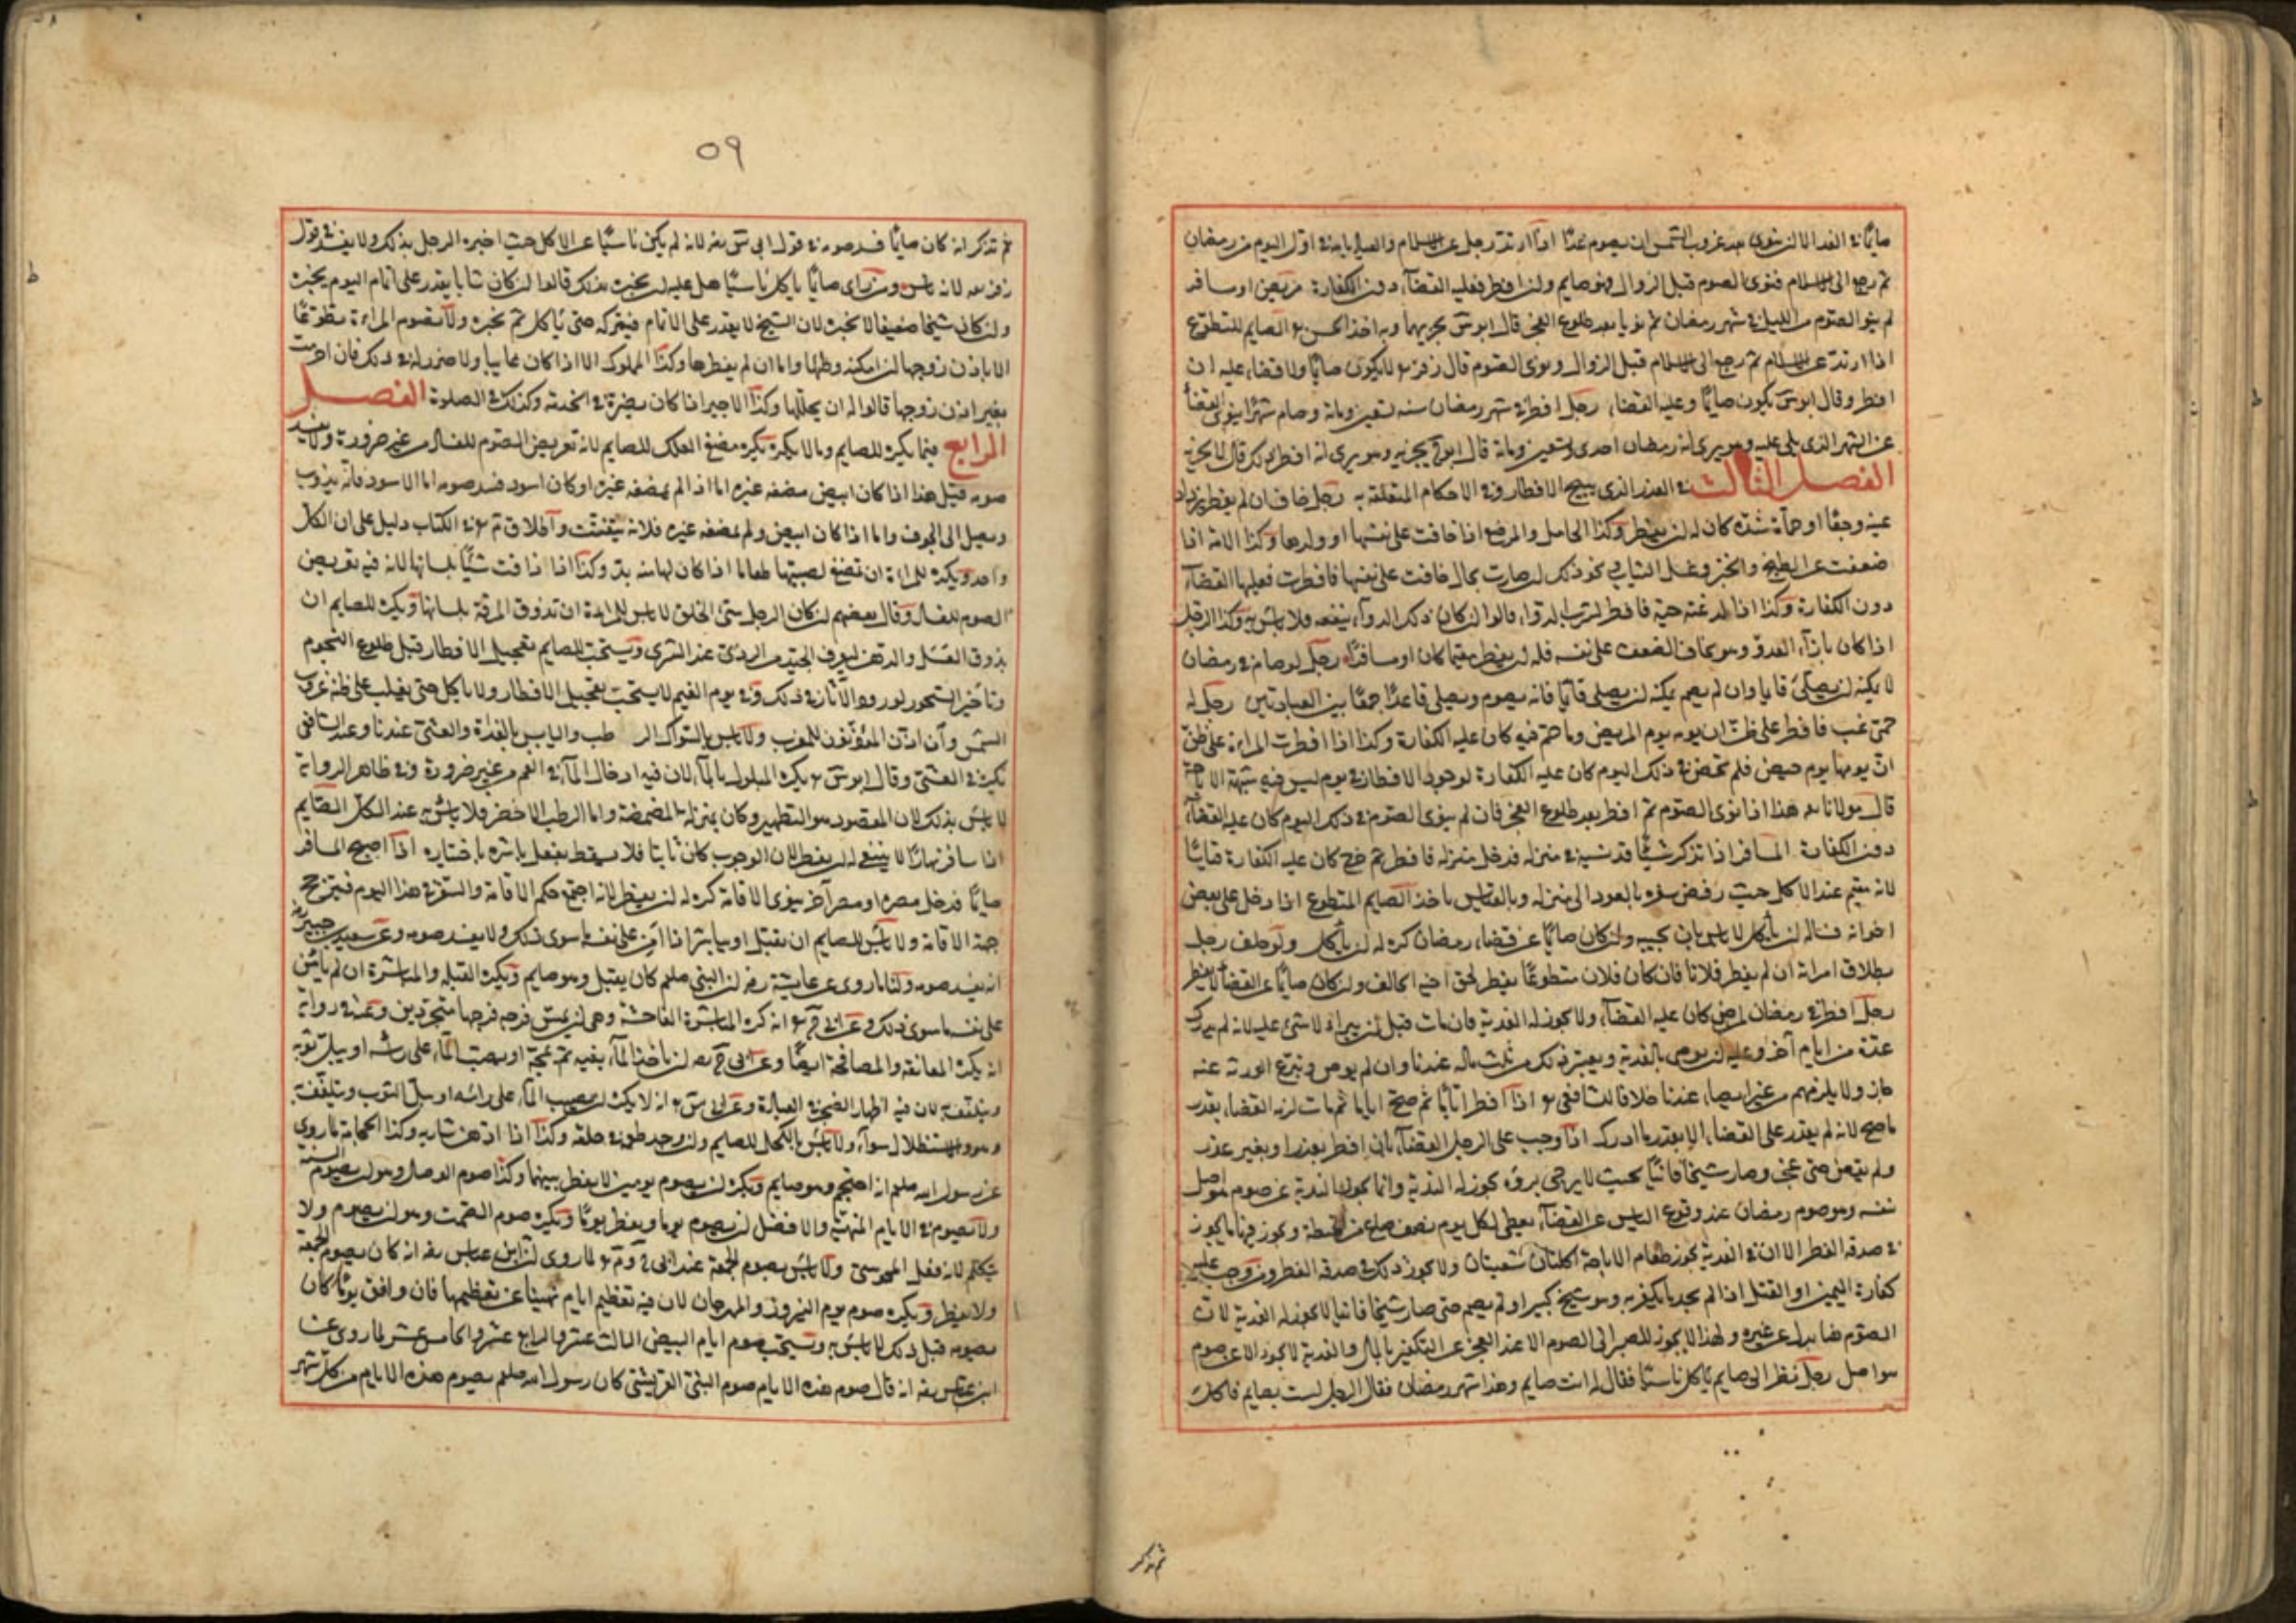 صايمًا في الغد الا ان ينوى بعد غروب الشمس ان يصوم غدًا اذا ارتد رجل عن الاسلام والعياذ بالله في اول اليوم من رمضان
ثم رجع الى الاسلام فنوى الصوم قبل الزوال فهو صايم ولن افطر فعليه القضاء دون الكفارة مريض او مسافر
لم ينو الصوم من الليل في شهر رمضان ثم نويا بعد طلوع الفجر قال ابو س يجزيهما وبه اخذ الحسن الصايم للتطوع
اذا ارتد عن الاسلام ثم رجع الى الاسلام قبل الزوال ونوى الصوم قال زفر لا يكون صايمًا ولا قضاء عليه ان
افطر وقال ابو س يكون صايمًا وعليه القضاء رجل افطر في شهر رمضان سنه تسعين ومائة وصام شهرًا ينوى القضاء
عن الشهر الذى يلى عليه وهو يرى انه رمضان احدى وتسعين ومائة قال ابو ح يجزيه وهو يرى انه افطر ذلك قال لا يجزيه
الفصل الثالث في العذر الذى يبيح الافطار وفي الاحكام المتعلقة به رجل خاف ان لم يفطر يزداد
عينه وجعًا او حماه شدة كان له ان يفطر وكذا الحامل والمرضع اذا خافت على نفسها او ولدها وكذا الامة اذا
ضعفت عن الطبخ والخبز وغسل الثياب ونحو ذلك ان صارت بحال خافت على نفسها فافطرت فعليها القضاء
دون الكفارة وكذا اذا لدغته حية فافطر لشرب الدواء قالوا ان كان ذلك الدواء ينفعه فلا باس به وكذا الرجل
اذا كان بازاء العدو وهو يخاف الضعف على نفسه فله ان يفطر مقيما كان او مسافرًا رجل لو صام في رمضان
لا يمكنه ان يصلى قايما وان لم يصم يمكنه ان يصلى قائمًا فانه يصوم ويصلى قاعدًا جمعًا بين العبادتين رجل له
حمى غب فافطر على ظن ان يومه يوم المرض وما حم فيه كان عليه الكفارة وكذا اذا افطرت المراءة على ظن
ان يومها يوم حيض فلم تحض في ذلك اليوم كان عليه الكفارة لوجود الافطار في يوم ليس فيه شبهة الاباحة
قال مولانا هذا اذا نوى الصوم ثم افطر بعد طلوع الفجر فان لم ينوى الصوم في ذلك اليوم كان عليه القضاء
دون الكفارة المسافر اذا تذكر شيئًا قد نسيه في منزله فدخل منزله فافطر ثم خرج كان عليه الكفارة قياسًا
لانه مقيم عند الاكل حيث رفض سفره بالعود الى منزله وبالقياس ناخذ الصايم المتطوع اذا دخل على بعض
اخوانه فساله ان ياكل لا باس بان يجيبه وان كان صائمًا عن قضاء رمضان كره له ان ياكل ولو حلف رجل
بطلاق امراته ان لم يفطر فلانا فان كان فلان متطوعًا يفطر لحق اخيه الحالف ولن كان صايمًا عن القضاء لا يفطر
رجل افطر في رمضان لمرض كان عليه القضاء ولا يجوز له الفدية فان مات قبل ان يبرا لا شئ عليه لانه لم يدرك
عدة من ايام آخر وعليه ان يوصى بالفدية ويعتبر ذلك من ثلث ماله عندنا وان لم يوص وتبرع الورثة عنه
جاز ولا يلزمهم من غير ايصاء عندنا خلافا للشافعى اذا افطر ايامًا ثم صح اياما ثم مات لزمه القضاء بقدر
ما صح لانه لم يقدر على القضاء الا بقدر ما ادرك اذا وجب على الرجل القضاء بان افطر بعذر او بغير عذر
ولم يقض حتى عجز وصار شيخًا فانيًا بحيث لا يرجى بروه يجوز له الفدية وانما يجوز الفدية عن صوم هو اصل
نفسه وهو صوم رمضان عند وقوع الياس عن القضاء يعطى لكل يوم نصف صاع من حنطة ويجوز فيها ما يجوز
في صدقة الفطر الا ان في الفدية يجوز طعام الاباحة اكلتان مشبعتان ولا يجوز ذلك في صدقة الفطر ومن وجب عليه
كفارة اليمين او القتل اذا لم يجد ما يكفر به وهو شيخ كبير او لم يصم حتى صار شيخا فانيا لا يجوز له الفدية لان
الصوم هنا بدل عن غيره ولهذا لا يجوز المصير الى الصوم الا عند العجز عن التكفير بالمال والفدية لا يجوز الا عن صوم
هو اصل رجل نظر الى صايم ياكل ناسيًا فقال له انت صايم وهذا شهر رمضان فقال الرجل لست بصايم فاكل
ثم تذكر
٥٩
ثم تذكر انه كان صايمًا فسد صومه في قول ابى س لانه لم يكن ناسيًا عن الاكل حيث اخبره الرجل بذلك ولا يفسد في قول
زفر لانه ناس ومن راى صايمًا ياكل ناسيًا هل عليه ان يخبره بذلك قالوا ان كان شابا يقدر على اتمام اليوم يخبره
ولن كان شيخا ضعيفا لا يخبره لان الشيخ لا يقدر على الاتمام فيتركه حتى ياكل ثم يخبره ولا تصوم المراءة تطوعًا
الا باذن زوجها لن امكنه وطئها واما ان لم يفطرها وكذا المملوك الا اذا كان غايبا ولا ضرر له في ذلك فان احرمت
بغير اذن زوجها قالوا له ان يحللها وكذا الاجير اذا كان يضره في الخدمة وكذلك في الصلوة الفصل
الرابع فيما يكره للصايم وما لا يكره يكره مضغ العلك للصايم لانه تعريض الصوم للفساد من غير ضرورة ولا يفسد
صومه قيل هذا اذا كان ابيض مضغه غيره اما اذا لم يمضغه غيره او كان اسود فسد صومه اما الاسود فانه يذوب
ويصل الى الجوف واما اذا كان ابيض ولم يمضغه غيره فلانه يتفتت واطلاق م في الكتاب دليل على ان الكل
واحد ويكره للمراءة ان تمضغ لصبيتها طعاما اذا كان لها منه بد وكذا اذا ذاقت شيئًا بلسانها لانه فيه تعريض
الصوم للفساد وقال بعضهم ان كان الرجل سئ الخلق لا باس للمراءة ان تذوق المرقة بلسانها ويكره للصايم ان
يذوق العسل والدهن ليعرف الجيد من الردى عند الشرى ويستحب للصايم تعجيل الافطار قبل طلوع النجوم
وتاخير السحور لورود الآثار في ذلك وفي يوم الغيم لا يستحب تعجيل الافطار ولا ياكل حتى يغلب على ظنه غروب
الشمس وان اذن المؤذنون للمغرب ولا باس بالسواك الرطب واليابس بالغداة والعشى عندنا وعند الشافعى
يكره في العشى وقال ابو س يكره المبلول بالماء لان فيه ادخال الماء في الفم من غير ضرورة وفي ظاهر الرواية
لا باس بذلك لان المقصود هو التطهير وكان بمنزلة المضمضة واما الرطب الاخضر فلا باس به عند الكل الصايم
اذا سافر نهارًا لا ينبغى له ان يفطر لان الوجوب كان ثابتا فلا يسقط بفعل باشره باختياره اذا اصبح المسافر
صايمًا فدخل مصره او مصر آخر ينوى الاقامة كره له ان يفطر لانه اجتمع حكم الاقامة والسفر في هذا اليوم فيترجح
جهة الاقامة ولا باس للصايم ان يقبل او يباشر اذا امن على نفسه ما سوى ذلك ولا يفسد صومه وعن سعيد بن جبير
انه يفسد صومه ولنا ما روى عن عايشة رض ان النبى صلعم كان يقبل وهو صايم ويكره القبلة والمباشرة ان لم يامن
على نفسه ما سوى ذلك وعن ابى ح انه كره المباشرة الفاحشة وهى ان يمس فرجه فرجها متجردين وعنه في رواية
انه يكره المعانقة والمصافحة ايضًا وعن ابى ح ان ياخذ الماء بفيه ثم يمجه او يصب الماء على راسه او يبل ثوبه
ويتلفف به لان فيه اظهار الضجر في العبادة وعن ابى س انه لا يكره ان يصب الماء على راسه او يبل الثوب ويتلفف به
وهو والاستظلال سواء ولا باس بالكحل للصايم ولن وجد طعمه في حلقه وكذا اذا ادهن شاربه وكذا الحجامة لما روى
عن رسول الله صلعم انه احتجم وهو صايم ويكره ان يصوم يومين لا يفطر بينهما وكذا صوم الوصال وهو ان يصوم السنة
ولا يصوم في الايام المنهية والافضل ان يصوم يوما ويفطر يومًا ويكره صوم الصمت وهو ان يصوم ولا
يتكلم لانه فعل المجوسى ولا باس بصوم الجمعة عند ابى ح وم لما روى ان ابن عباس انه كان يصوم الجمعة
ولا يفطر ويكره صوم يوم النيروز والمهرجان لان فيه تعظيم ايام نهينا عن تعظيمها فان وافق يومًا كان
يصومه قبل ذلك لا باس به ويستحب صوم ايام البيض الثالث عشر والرابع عشر والخامس عشر لما روى عن
ابن عباس انه قال صوم هذه الايام صوم كان رسول الله صلعم يصوم هذه الايام من كل شهر